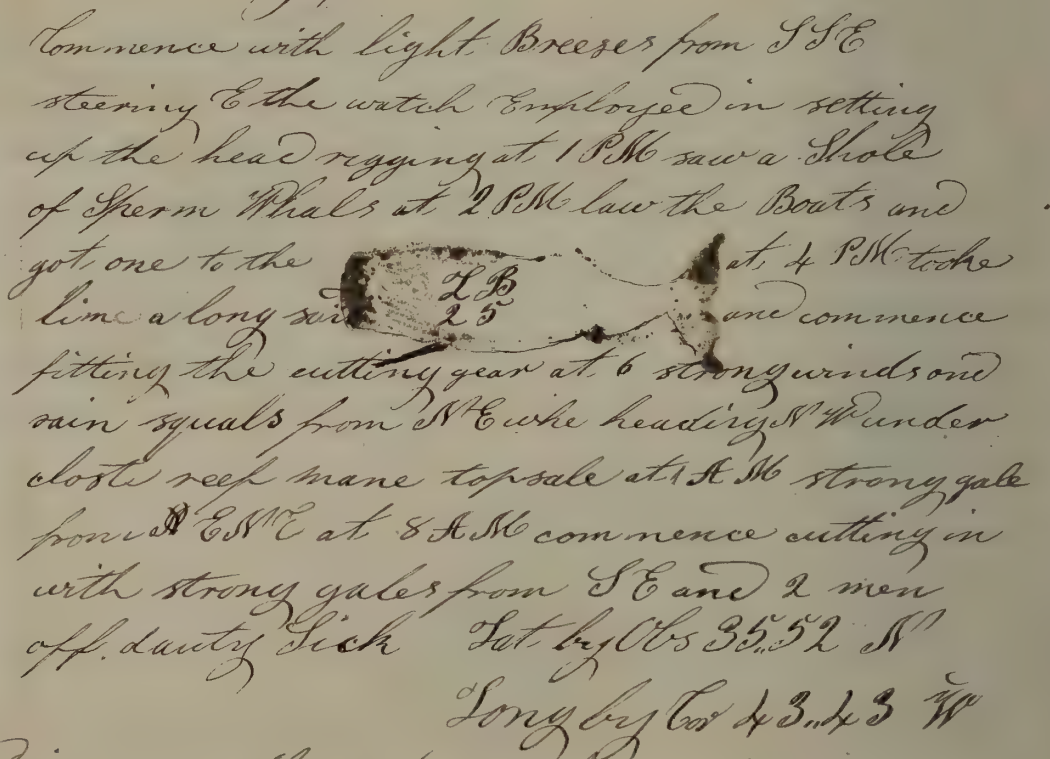 Commence with light Breezes from SSE
steering E the watch Employed in setting
up the head rigging at 1 PM saw a Shole
of Sperm Whals at 2 PM law the Boats and
got one to the LB 25 at 4 PM tooke
lime a long and commence
fitting the cutting gear at 6 strong winds and
rain squals from NE whe heading NW under
close reef mane topsale at 1 AM strong gale
from ENE at 8 AM commence cutting in
with strong gales from SE and 2 men
off dauty Sick Lat by Obs 35..52 N
Long by Cor 43..43 W